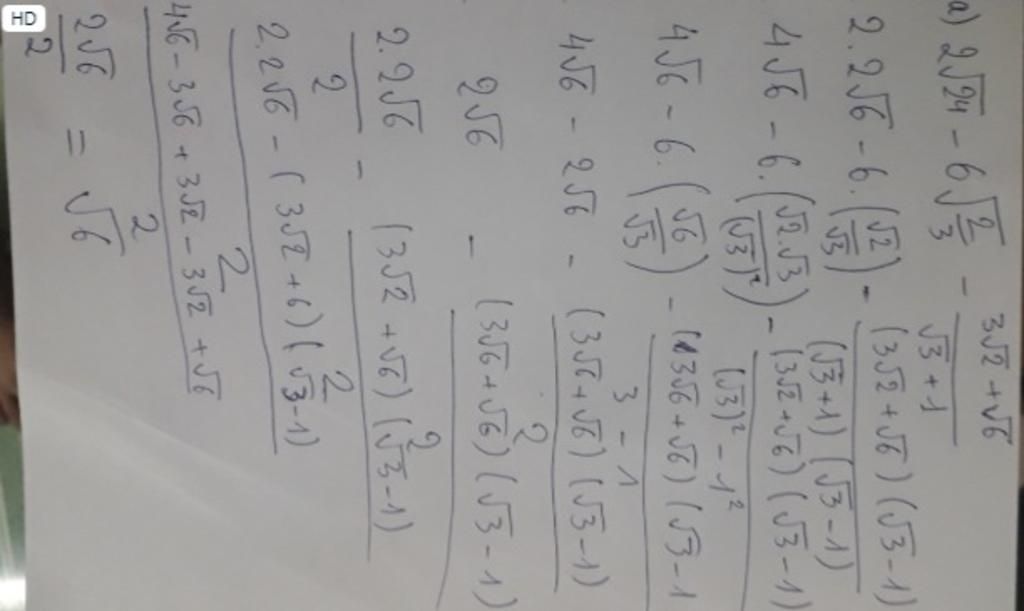 HD
a) 2√24 - 6√(2/3) - (3√2 + √6)/(√3 + 1)
2.2√6 - 6.(√2/√3) - (3√2 + √6)(√3 - 1)/(√3 + 1)(√3 - 1)
4√6 - 6.(√2.√3/(√3)²) - (3√2 + √6)(√3 - 1)/(√3)² - 1²
4√6 - 6.(√6/√3) - (3√6 + √6)(√3 - 1/3 - 1
4√6 - 2√6 - (3√6 + √6)(√3 - 1)/2
2√6 - (3√6 + √6)(√3 - 1)/2
2.2√6/2 - (3√2 + √6)(√3 - 1)/2
2.2√6 - (3√2 + 6)(√3 - 1)/2
4√6 - 3√6 + 3√2 - 3√2 + √6/2
2√6/2 = √6